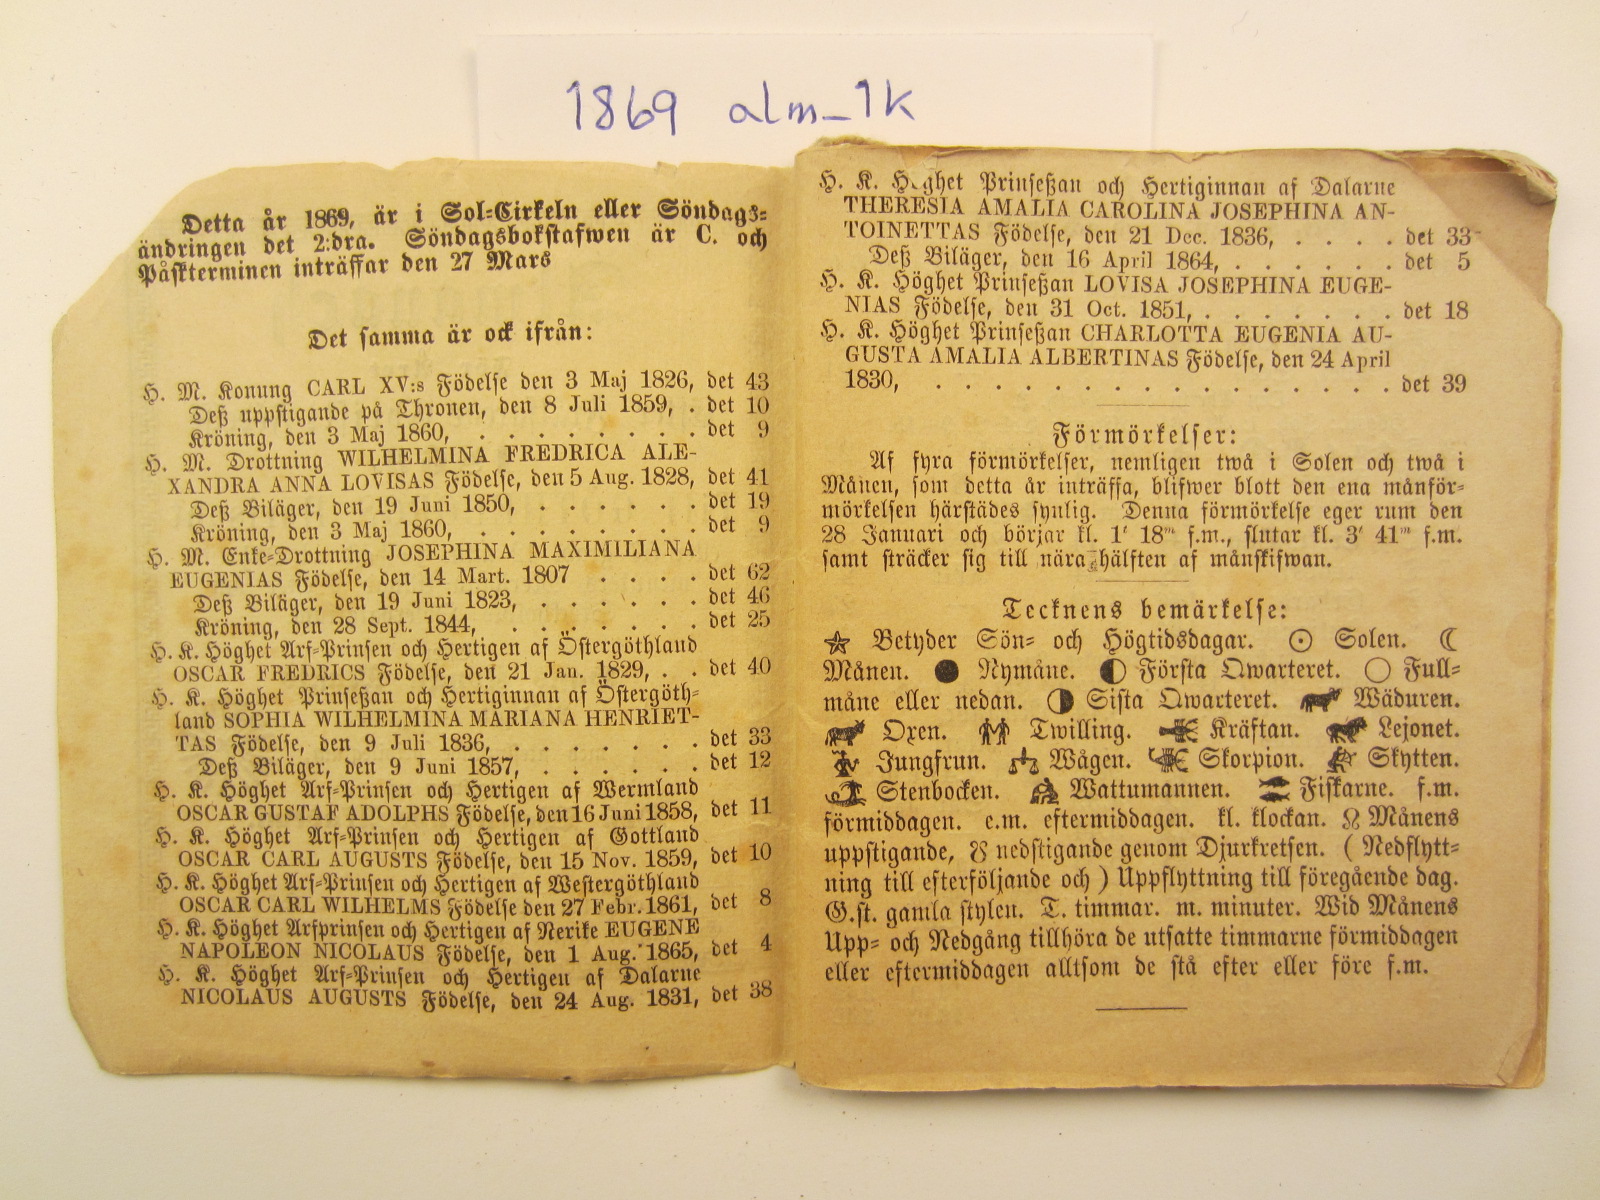 1869 alm_1k
Detta år 1869, är i Sol-Cirkeln eller Söndags-
ändringen det 2:dra. Söndagsbokstafwen är C. och
Påskterminen inträffar den 27 Mars
Det samma är ock ifrån:
H. M. Konung CARL XV:s Födelse den 3 Maj 1826, det 43
Deß uppstigande på Thronen, den 8 Juli 1859, . det 10
Kröning, den 3 Maj 1860, . . . . . . . . det 9
H. M. Drottning WILHELMINA FREDRICA ALE-
XANDRA ANNA LOVISAS Födelse, den 5 Aug. 1828, det 41
Deß Biläger, den 19 Juni 1850, . . . . . . det 19
Kröning, den 3 Maj 1860, . . . . . . . . det 9
H. M. Enke-Drottning JOSEPHINA MAXIMILIANA
EUGENIAS Födelse, den 14 Mart. 1807 . . . . det 62
Deß Biläger, den 19 Juni 1823, . . . . . . det 46
Kröning, den 28 Sept. 1844, . . . . . . . det 25
H. K. Höghet Arf-Prinsen och Hertigen af Östergöthland
OSCAR FREDRICS Födelse, den 21 Jan. 1829, . . det 40
H. K. Höghet Prinseßan och Hertiginnan af Östergöth-
land SOPHIA WILHELMINA MARIANA HENRIET-
TAS Födelse, den 9 Juli 1836, . . . . . . . det 33
Deß Biläger, den 9 Juni 1857, . . . . . . det 12
H. K. Höghet Arf-Prinsen och Hertigen af Wermland
OSCAR GUSTAF ADOLPHS Födelse, den 16 Juni 1858, det 11
H. K. Höghet Arf-Prinsen och Hertigen af Gottland
OSCAR CARL AUGUSTS Födelse, den 15 Nov. 1859, det 10
H. K. Höghet Arf-Prinsen och Hertigen af Westergöthland
OSCAR CARL WILHELMS Födelse den 27 Febr. 1861, det 8
H. K. Höghet Arfprinsen och Hertigen af Nerike EUGENE
NAPOLEON NICOLAUS Födelse, den 1 Aug. 1865, det 4
H. K. Höghet Arf-Prinsen och Hertigen af Dalarne
NICOLAUS AUGUSTS Födelse, den 24 Aug. 1831, det 38
H. K. Höghet Prinseßan och Hertiginnan af Dalarne
THERESIA AMALIA CAROLINA JOSEPHINA AN-
TOINETTAS Födelse, den 21 Dec. 1836, . . . . det 33
Deß Biläger, den 16 April 1864, . . . . . . det 5
H. K. Höghet Prinseßan LOVISA JOSEPHINA EUGE-
NIAS Födelse, den 31 Oct. 1851, . . . . . . . det 18
H. K. Höghet Prinseßan CHARLOTTA EUGENIA AU-
GUSTA AMALIA ALBERTINAS Födelse, den 24 April
1830, . . . . . . . . . . . . . . . . . det 39
Förmörkelser:
Af fyra förmörkelser, nemligen twå i Solen och twå i
Månen, som detta år inträffa, blifwer blott den ena månför-
mörkelsen härstädes synlig. Denna förmörkelse eger rum den
28 Januari och börjar kl. 1' 18m f.m., slutar kl. 3' 41m f.m.
samt sträcker sig till nära hälften af månskifwan.
Tecknens bemärkelse:
☆ Betyder Sön- och Högtidsdagar. ☉ Solen. ☾
Månen. ● Nymåne. ◐ Första Qwarteret. ○ Full-
måne eller nedan. ◑ Sista Qwarteret. Wäduren.
Oxen. Twilling. Kräftan. Lejonet.
Jungfrun. Wågen. Skorpion. Skytten.
Stenbocken. Wattumannen. Fiskarne. f.m.
förmiddagen. e.m. eftermiddagen. kl. klockan. ☊ Månens
uppstigande, ☋ nedstigande genom Djurkretsen. ( Nedflytt-
ning till efterföljande och ) Uppflyttning till föregående dag.
G.st. gamla stylen. T. timmar. m. minuter. Wid Månens
Upp- och Nedgång tillhöra de utsatte timmarne förmiddagen
eller eftermiddagen alltsom de stå efter eller före f.m.